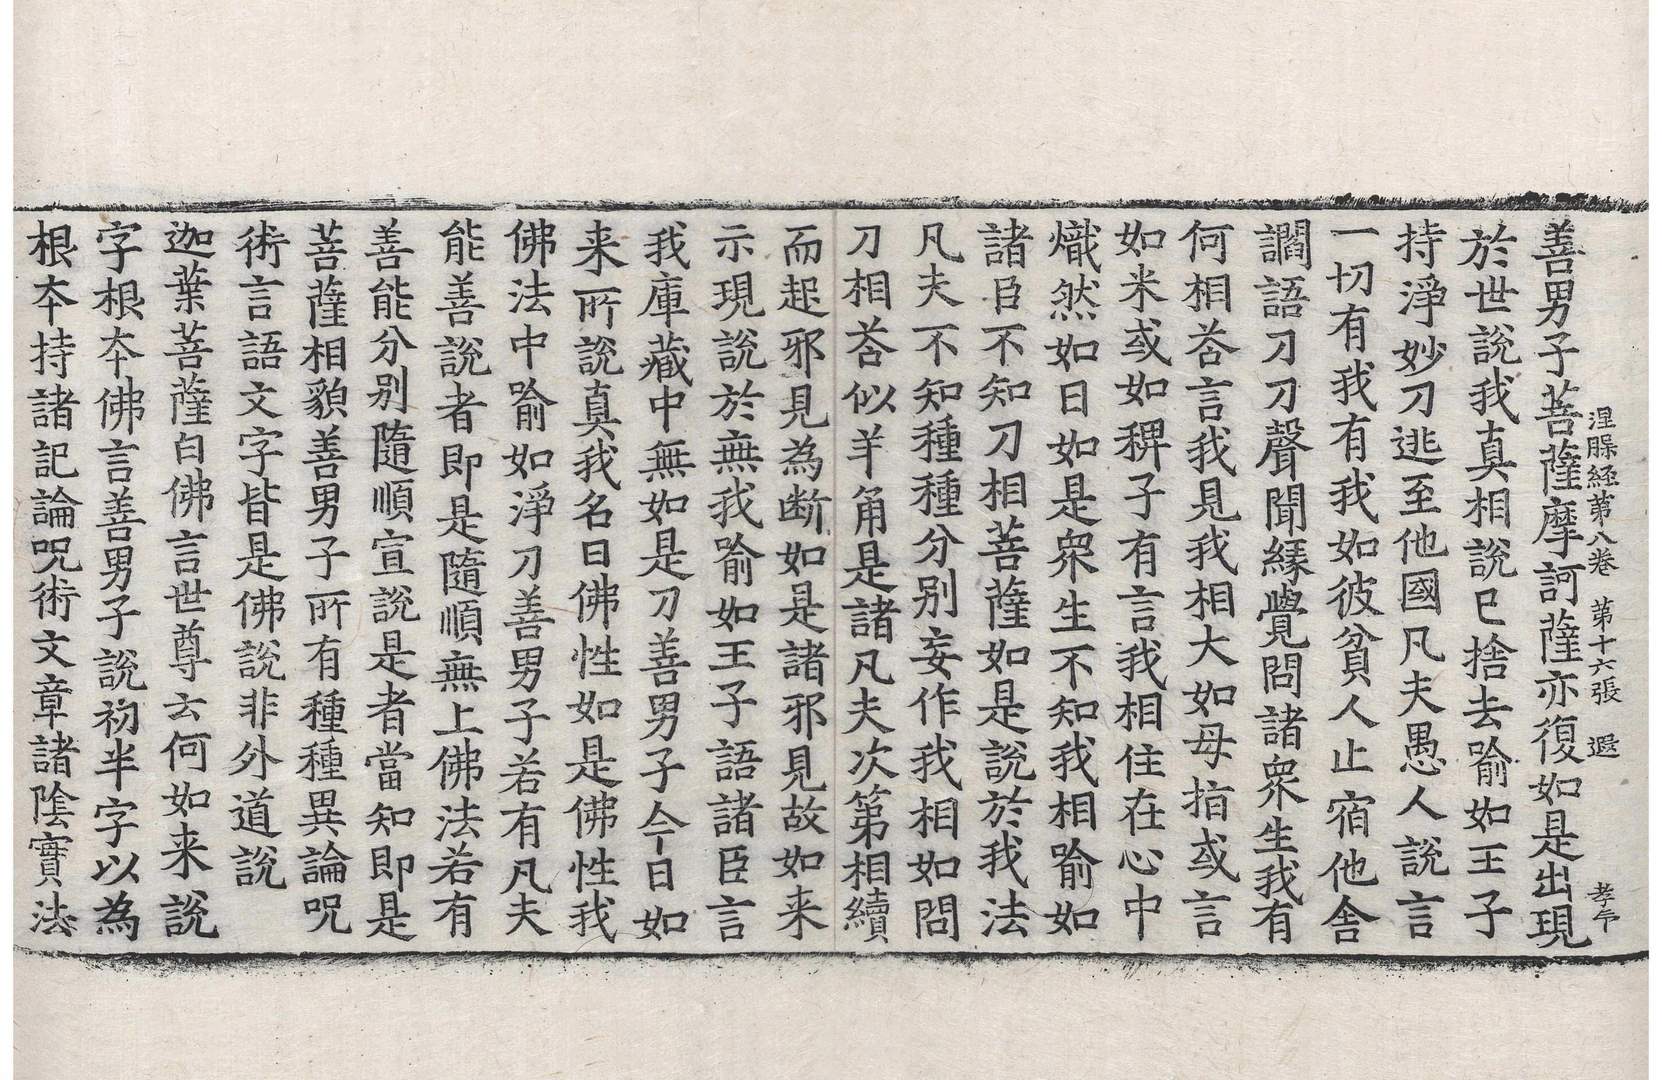 涅槃経第八卷 第十六張 遐 孝年
善男子菩薩摩訶薩亦復如是出現
於世說我真相說已捨去喻如王子
持淨妙刀逃至他國凡夫愚人說言
一切有我有我如彼貧人止宿他舎
讇語刀刀聲聞緣覺問諸眾生我有
何相荅言我見我相大如母指或言
如米或如稗子有言我相住在心中
熾然如日如是眾生不知我相喻如
諸臣不知刀相菩薩如是說於我法
凡夫不知種種分别妄作我相如問
刀相荅似羊角是諸凡夫次第相續
而起邪見為断如是諸邪見故如来
示現說於無我喻如王子語諸臣言
我庫藏中無如是刀善男子今日如
来所說真我名曰佛性如是佛性我
佛法中喻如淨刀善男子若有凡夫
能善說者即是隨順無上佛法若有
善能分别隨順宣說是者當知即是
菩薩相貌善男子所有種種異論呪
術言語文字皆是佛說非外道說
迦葉菩薩白佛言世尊云何如来說
字根夲佛言善男子說初半字以為
根夲持諸記論呪術文章諸陰實法